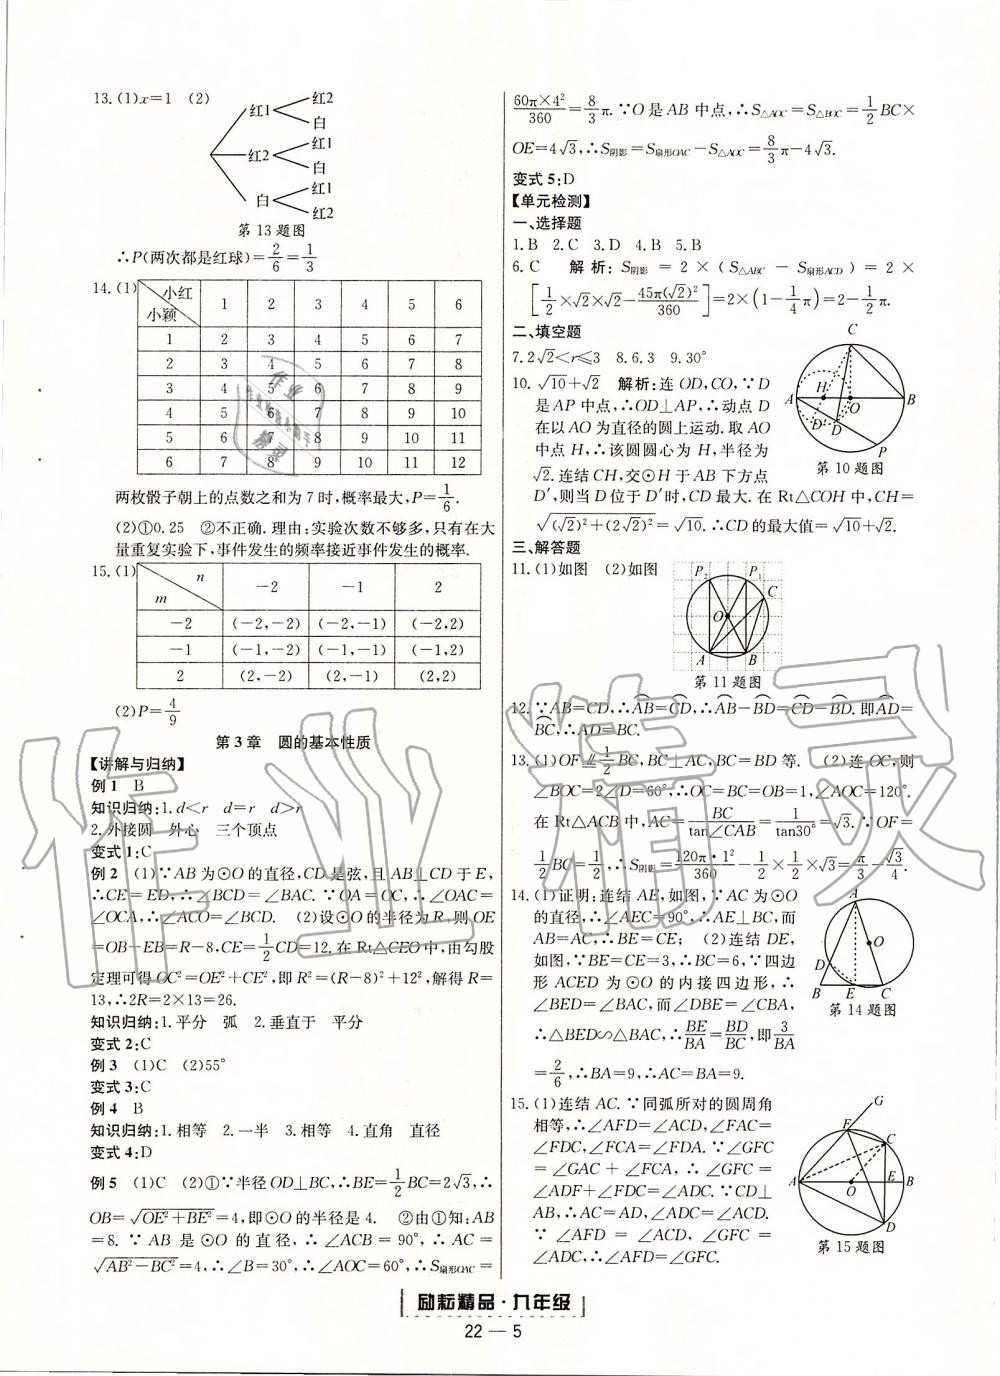 13.(1)x=1 (2)
红1 红2
白
红2 红1
白
白 红1
红2
第13题图
∴P(两次都是红球)=2/6=1/3
14.(1)
小红 小颖 1 2 3 4 5 6
1 2 3 4 5 6 7
2 3 4 5 6 7 8
3 4 5 6 7 8 9
4 5 6 7 8 9 10
5 6 7 8 9 10 11
6 7 8 9 10 11 12
两枚骰子朝上的点数之和为7时,概率最大,P=1/6.
(2)①0.25 ②不正确.理由:实验次数不够多,只有在大
量重复实验下,事件发生的频率接近事件发生的概率.
15.(1)
n m -2 -1 2
-2 (-2,-2) (-2,-1) (-2,2)
-1 (-1,-2) (-1,-1) (-1,2)
2 (2,-2) (2,-1) (2,2)
(2)P=4/9
第3章 圆的基本性质
【讲解与归纳】
例1 B
知识归纳:1.d<r d=r d>r
2.外接圆 外心 三个顶点
变式1:C
例2 (1)∵AB为⊙O的直径,CD是弦,且AB⊥CD于E,
∴CE=ED,∴∠BCD=∠BAC.∵OA=OC,∴∠OAC=
∠OCA,∴∠ACO=∠BCD. (2)设⊙O的半径为R,则OE
=OB-EB=R-8,CE=1/2CD=12.在Rt△CEO中,由勾股
定理可得OC²=OE²+CE²,即R²=(R-8)²+12²,解得R=
13,∴2R=2×13=26.
知识归纳:1.平分 弧 2.垂直于 平分
变式2:C
例3 (1)C (2)55°
变式3:C
例4 B
知识归纳:1.相等 2.一半 3.相等 4.直角 直径
变式4:D
例5 (1)C (2)①∵半径OD⊥BC,∴BE=1/2BC=2√3,∴
OB=√(OE²+BE²)=4,即⊙O的半径是4. ②由①知:AB
=8.∵AB是⊙O的直径,∴∠ACB=90°,∴AC=
√(AB²-BC²)=4,∴∠B=30°,∴∠AOC=60°,∴S扇形OAC=
60π×4²/360=8/3π.∵O是AB中点,∴S△AOC=S△BOC=1/2BC×
OE=4√3,∴S阴影=S扇形OAC-S△AOC=8/3π-4√3.
变式5:D
【单元检测】
一、选择题
1.B 2.C 3.D 4.B 5.B
6.C 解析:S阴影=2×(S△ABC-S扇形ACD)=2×
[1/2×√2×√2-45π(√2)²/360]=2×(1-1/4π)=2-1/2π.
二、填空题
7.2√2<r≤3 8.6.3 9.30°
10.√10+√2 解析:连OD,CO,∵D
是AP中点,∴OD⊥AP,∴动点D
在以AO为直径的圆上运动.取AO
中点H,∴该圆圆心为H,半径为
√2.连结CH,交⊙H于AB下方点
D′,则当D位于D′时,CD最大.在Rt△COH中,CH=
√((√2)²+(2√2)²)=√10.∴CD的最大值=√10+√2.
C A H O B D′ D P
第10题图
三、解答题
11.(1)如图 (2)如图
P₂ P₁ C O A B
第11题图
12.∵AB=CD,∴AB=CD,∴AB-BD=CD-BD.即AD=
BC,∴AD=BC.
13.(1)OF∥=1/2BC,BC⊥AC,BC=BD等. (2)连OC,则
∠BOC=2∠D=60°,∴OC=BC=OB=1,∠AOC=120°.
在Rt△ACB中,AC=BC/tan∠CAB=1/tan30°=√3.∵OF=
1/2BC=1/2,∴S阴影=120π·1²/360-1/2×1/2×√3=π/3-√3/4.
14.(1)证明:连结AE,如图,∵AC为⊙O
的直径,∴∠AEC=90°,∴AE⊥BC,而
AB=AC,∴BE=CE; (2)连结DE,
如图,∵BE=CE=3,∴BC=6,∵四边
形ACED为⊙O的内接四边形,∴
∠BED=∠BAC,而∠DBE=∠CBA,
∴△BED∽△BAC,∴BE/BA=BD/BC,即3/BA
=2/6,∴BA=9,∴AC=BA=9.
A O D B E C
第14题图
15.(1)连结AC.∵同弧所对的圆周角
相等,∴∠AFD=∠ACD,∠FAC=
∠FDC,∠FCA=∠FDA.∵∠GFC
=∠GAC+∠FCA,∴∠GFC=
∠ADF+∠FDC=∠ADC.∵CD⊥
AB,∴AC=AD,∠ADC=∠ACD.
∵∠AFD=∠ACD,∠GFC=
∠ADC,∴∠AFD=∠GFC.
G F C A O E B D
第15题图
励耘精品·九年级
22—5
作业精灵